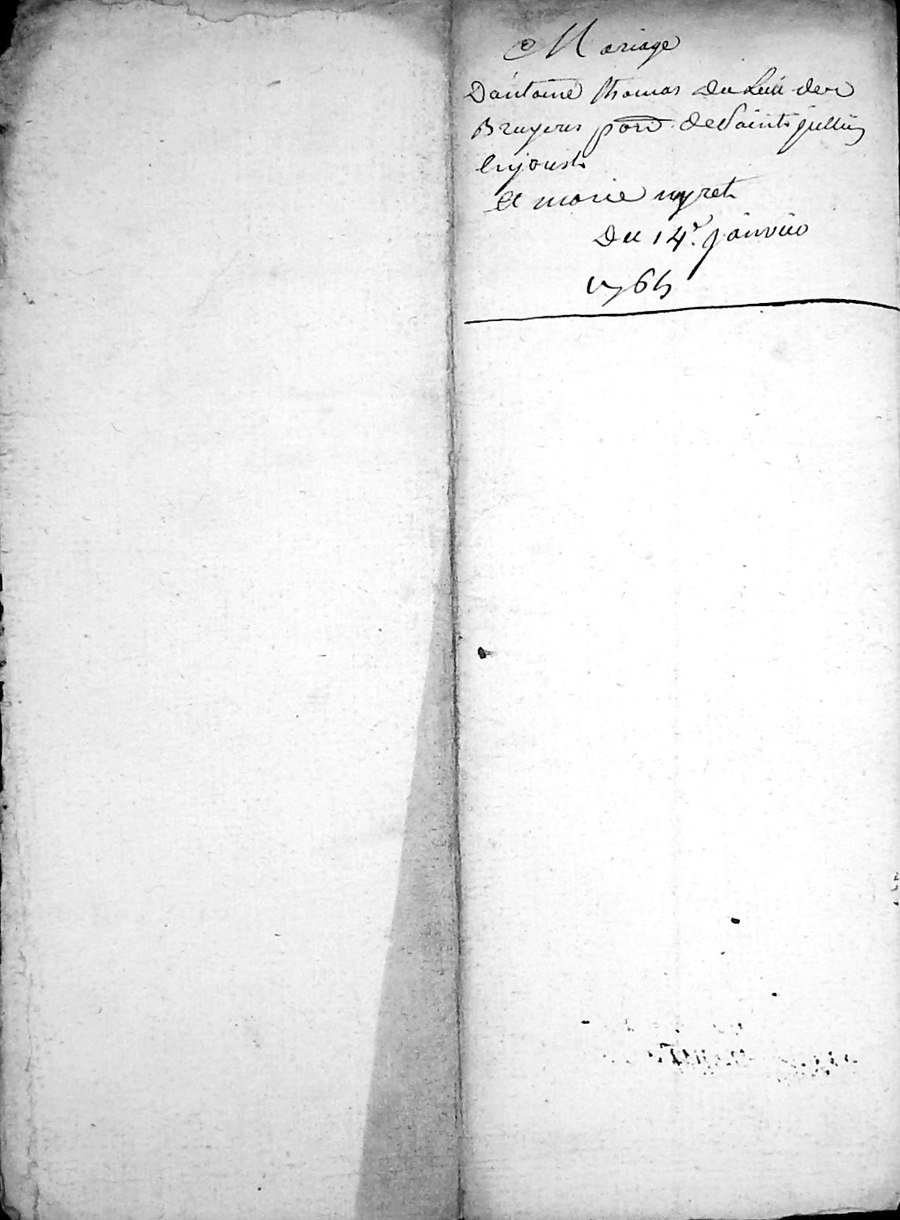 Mariage
D'antoine thomas du Lieu des
Bruyeres par de Saint jullien
en jarest
Et marie nyret
Du 14e. janvier
1765